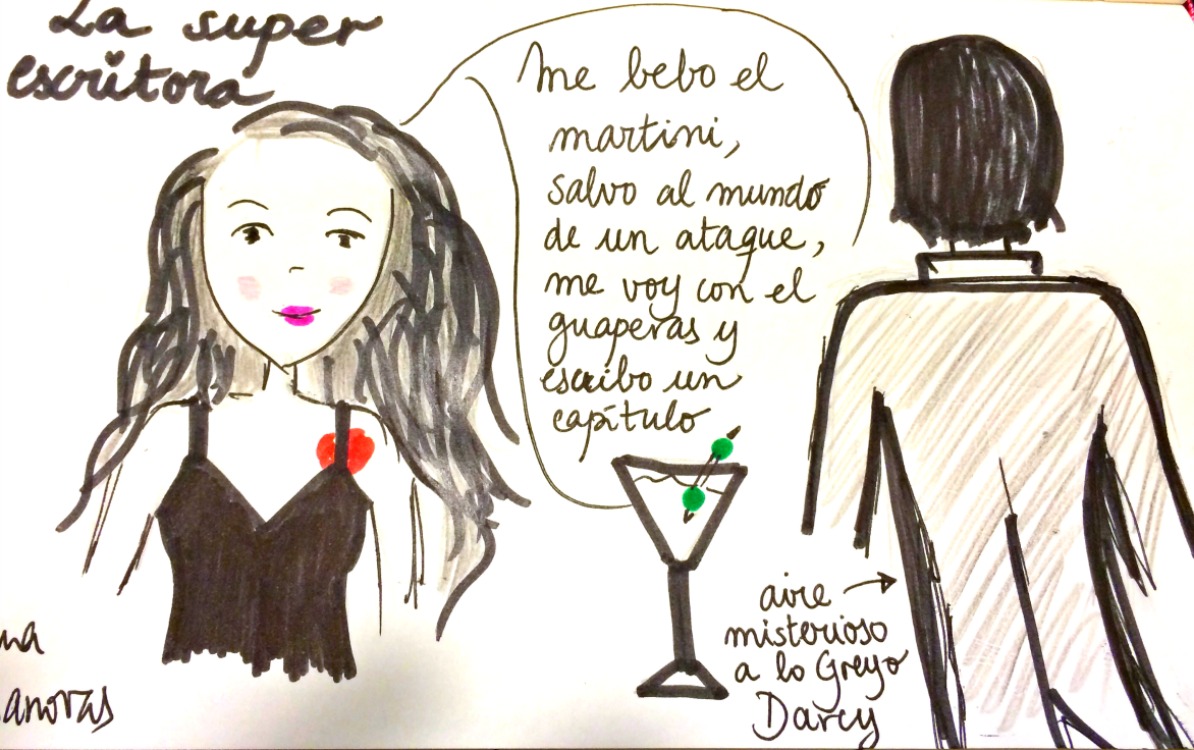 La super
escritora
me bebo el
martini,
salvo al mundo
de un ataque,
me voy con el
guaperas y
escribo un
capítulo
aire
misterioso
a lo Grey o
Darcy
na
anovas